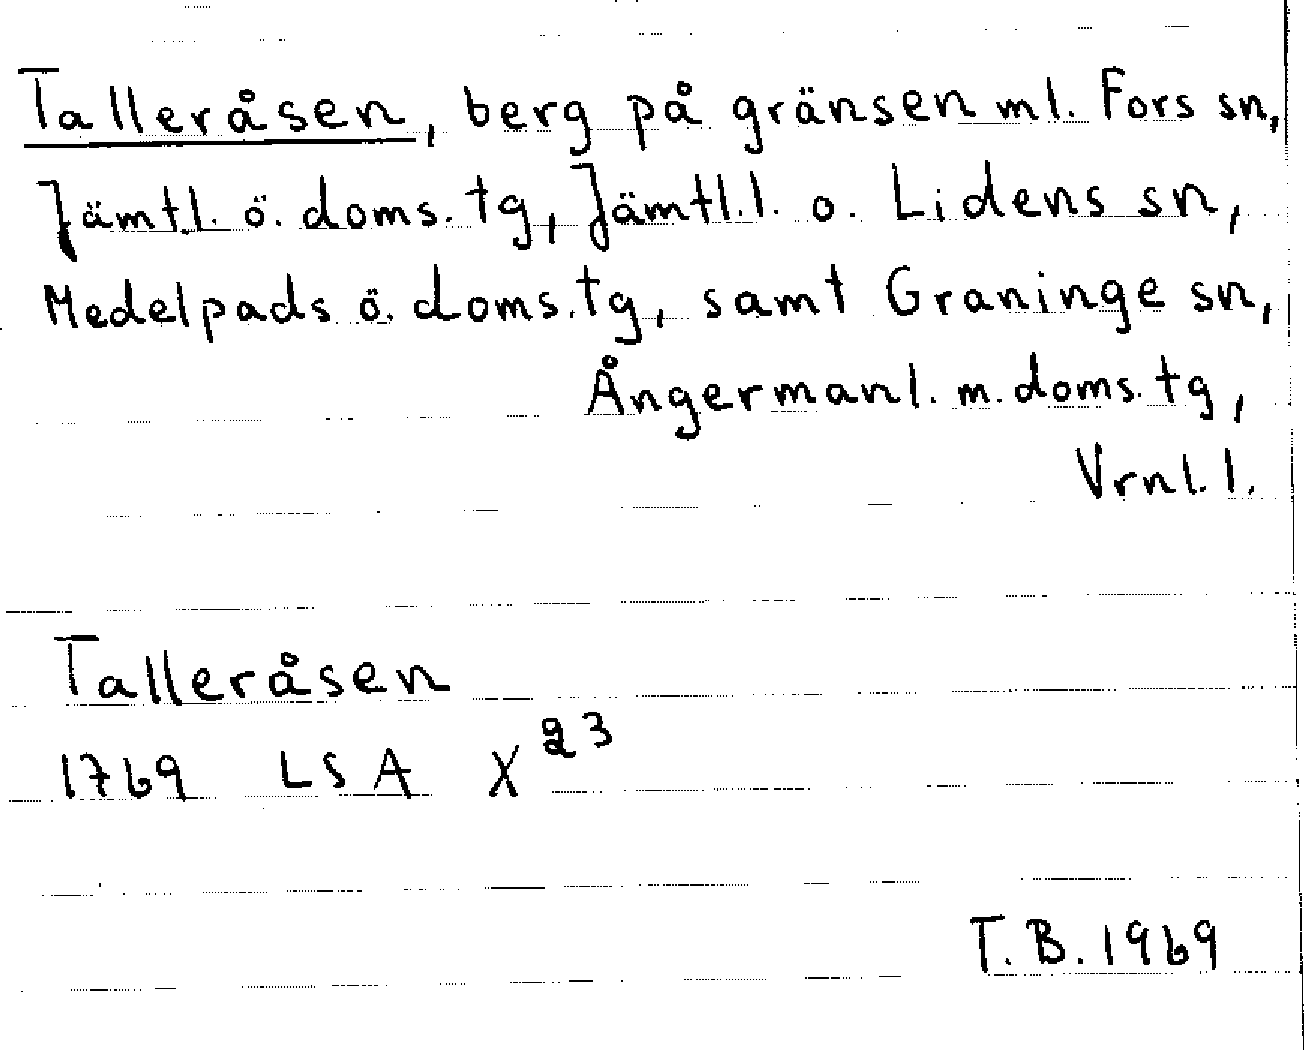 Talleråsen, berg på gränsen ml. Fors sn,
Jämtl. ö. doms. tg, Jämtl.l. o. Lidens sn,
Medelpads ö. doms.tg, samt Graninge sn,
Ångermanl. m. doms. tg,
Vrnl. l.
Talleråsen
1769 LSA X²³
T. B. 1969